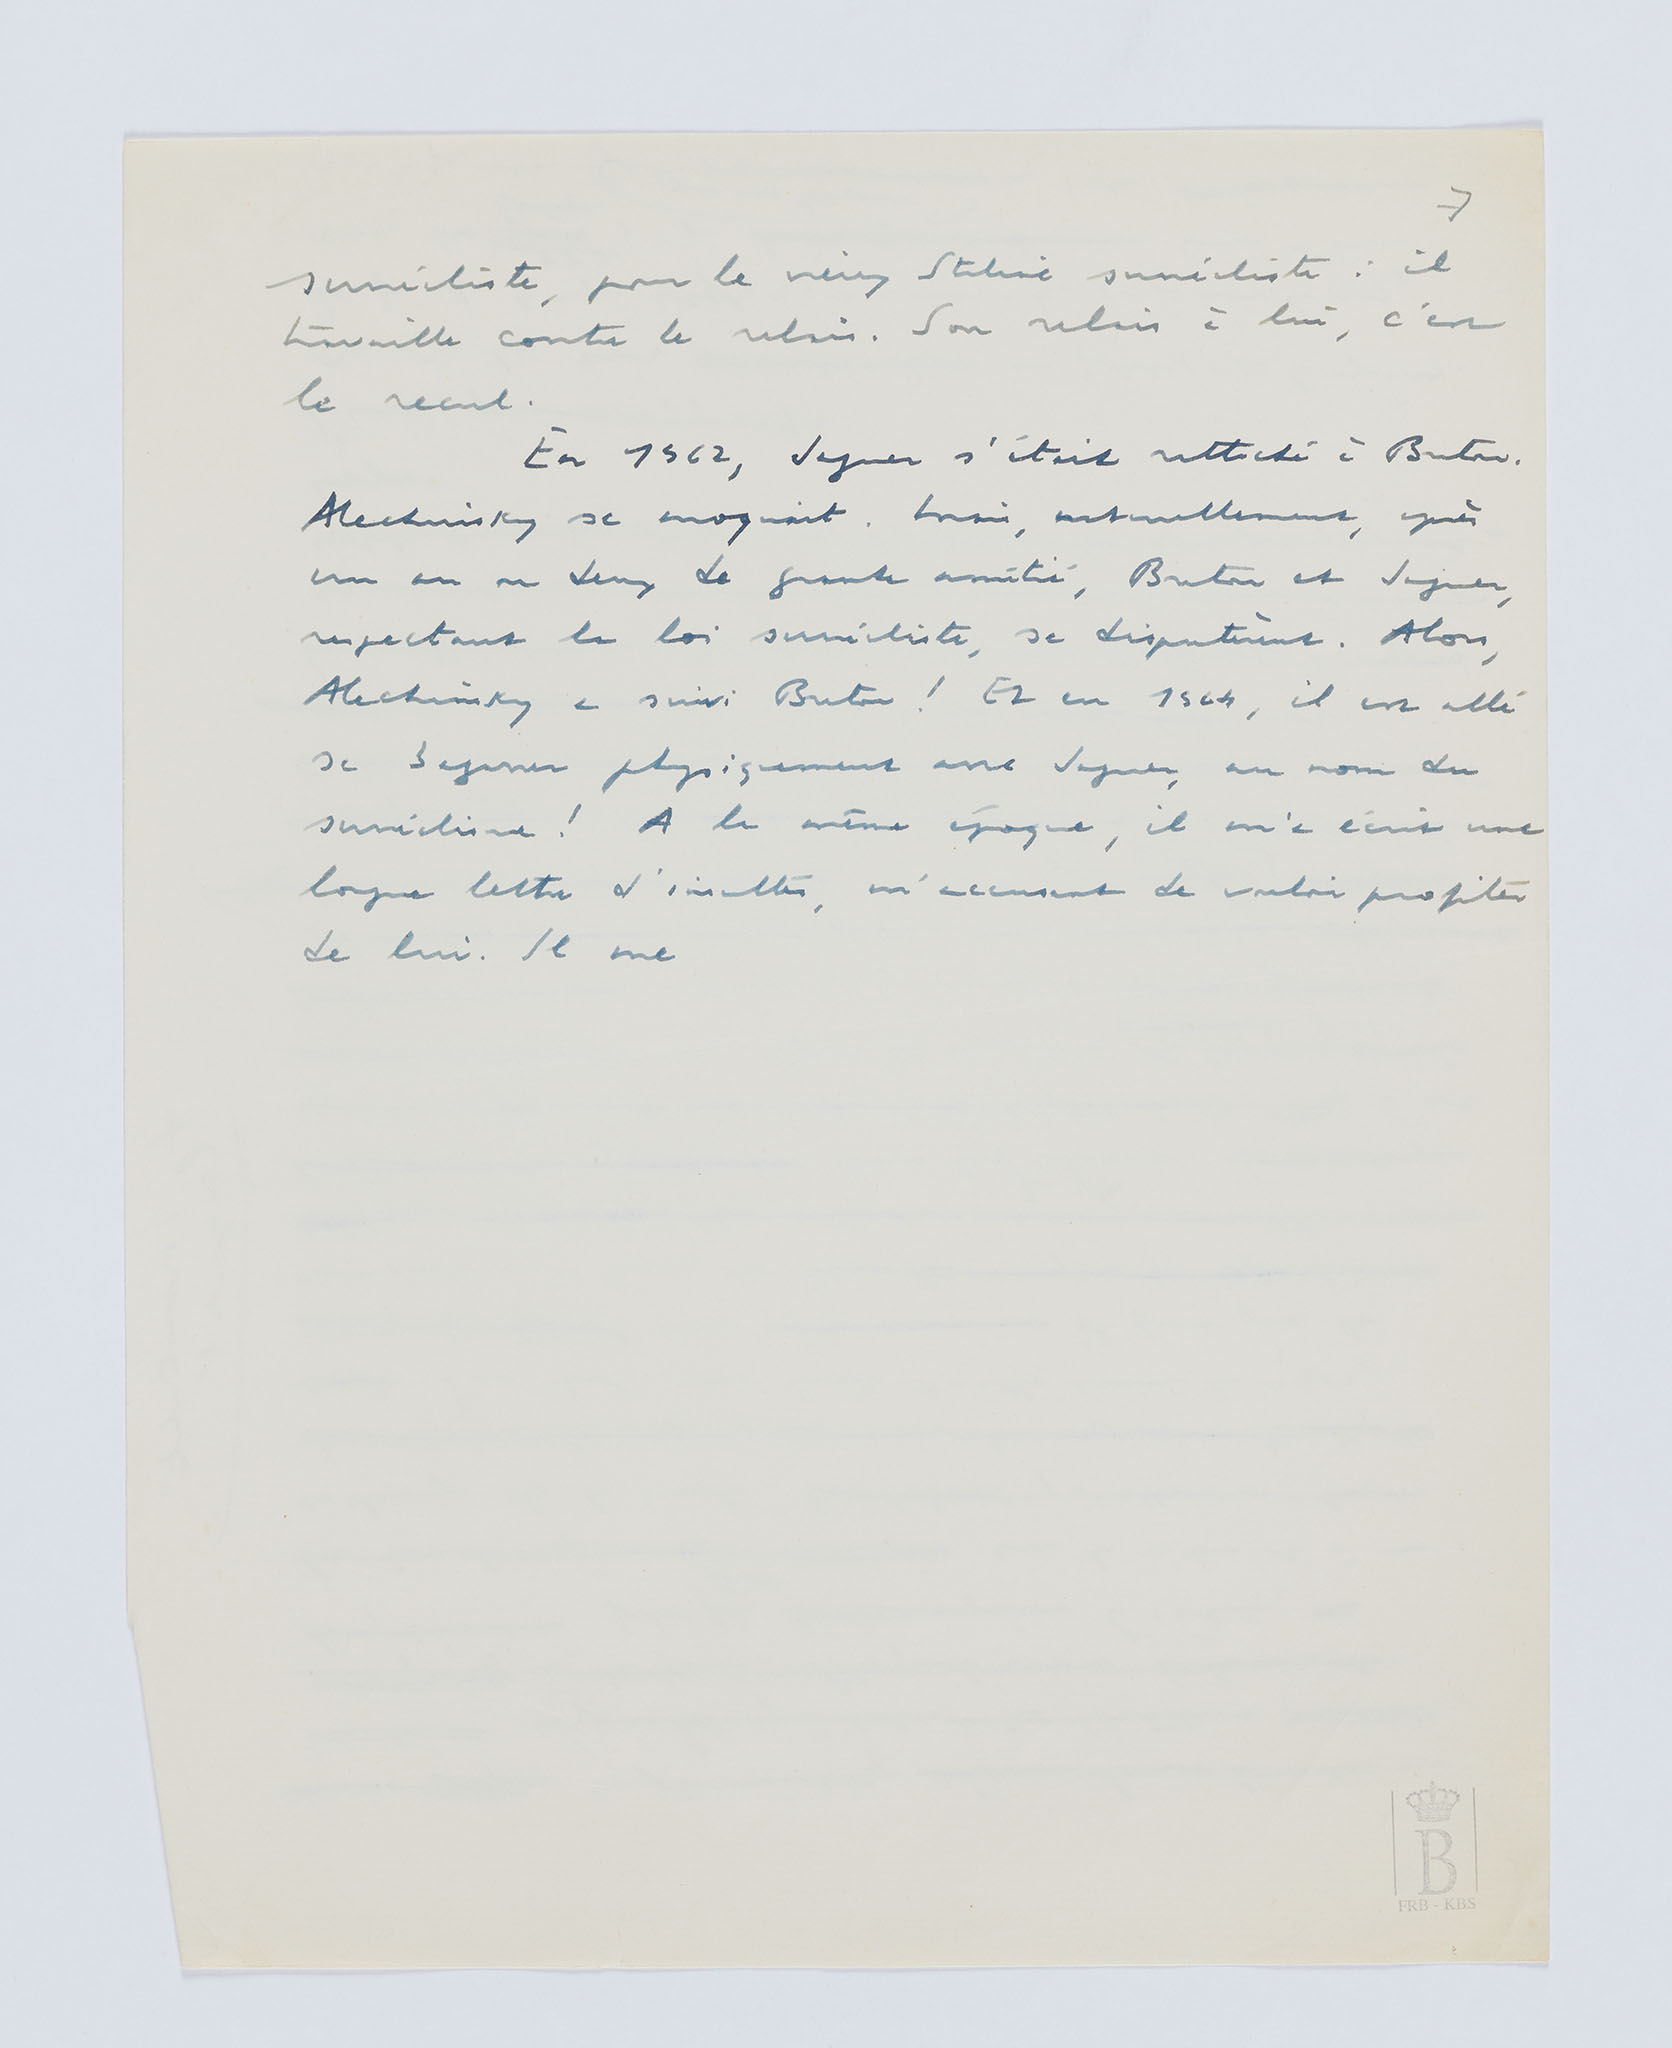 7
surréaliste, pour le vieux Staline surréaliste : il
travaille contre le relais. Son relais à lui, c'est
le recul.
En 1962, Jaguer s'était rattaché à Breton.
Alechinsky se moquait. Mais, naturellement, après
un an ou deux de grande amitié, Breton et Jaguer,
respectant la loi surréaliste, se disputèrent. Alors,
Alechinsky a suivi Breton ! Et en 1964, il est allé
se bagarrer physiquement avec Jaguer, au nom du
surréalisme ! A la même époque, il m'a écrit une
longue lettre d'insultes, m'accusant de vouloir profiter
de lui. Il me
B
FRB - KBS